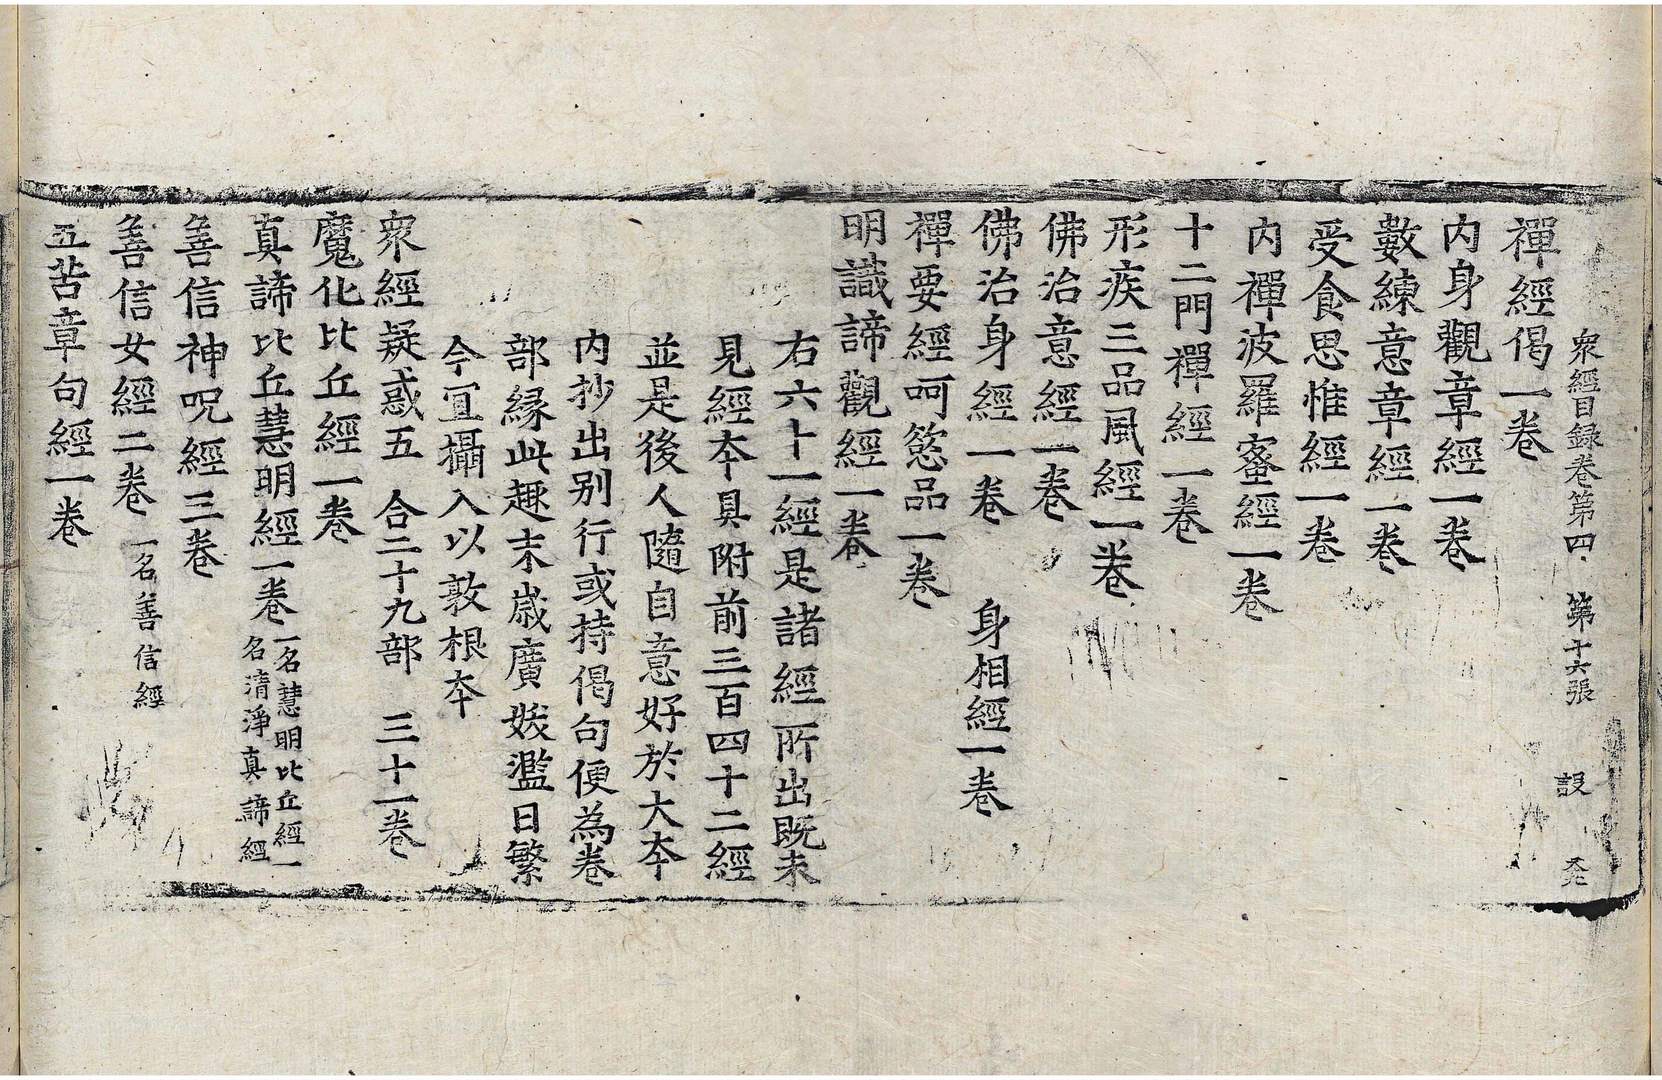 衆經目録卷第四 第十六張 設 癶
禪經偈一卷
内身觀章經一卷
數練意章經一卷
受食思惟經一卷
内禪波羅蜜經一卷
十二門禪經一卷
形疾三品風經一卷
佛治意經一卷
佛治身經一卷 身相經一卷
禪要經呵慾品一卷
明識諦觀經一卷
右六十一經是諸經所出既未
見經夲具附前三百四十二經
並是後人隨自意好於大夲
内抄出别行或持偈句便為卷
部縁此趣末歳廣妖濫日繁
今冝攝入以敦根夲
衆經疑惑五 合二十九部 三十一卷
魔化比丘經一卷
真諦比丘慧明經一卷 一名慧明比丘經一
名清淨真諦經
善信神呪經三卷
善信女經二卷 一名善信經
五苦章句經一卷